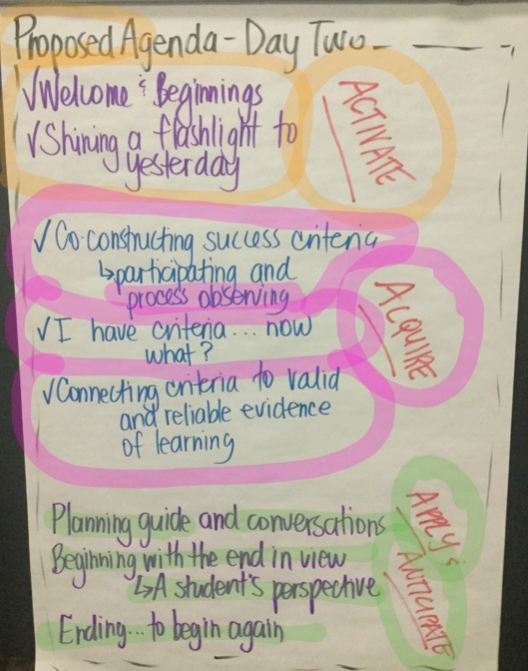 Proposed Agenda - Day Two
√Welcome & Beginnings
√Shining a flashlight to
yesterday
ACTIVATE
√Co-constructing success criteria
↳participating and
process observing
√I have criteria... now
what?
√Connecting criteria to valid
and reliable evidence
of learning
ACQUIRE
Planning guide and conversations
Beginning with the end in view
↳A student's perspective
Ending... to begin again
APPLY &
ANTICIPATE